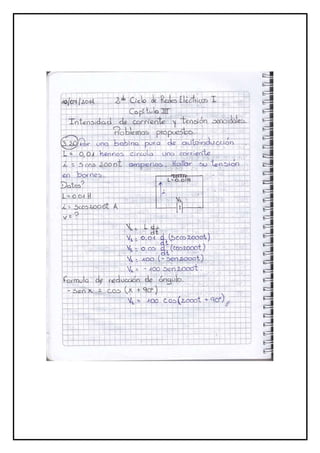 2do Ciclo de Redes Eléctricas I
Capítulo III
Intensidad de corriente y tensión senoidales.
Problemas propuestos
Por una bobina pura de autoinducción
L = 0,01 henrios circula una corriente
i = 5 cos 2000t amperios. Hallar su tensión
en bornes.
Datos?
L = 0.01H
L = 0.01 H
i = 5cos2000t A
v = ?
VL = L di/dt
VL = 0.01 d/dt (5cos2000t)
VL = d/dt (cos2000t)
VL = 100 (-sen2000t)
VL = -100 sen2000t
Formula de reducción de ángulo.
-sen x = cos (x + 90°)
VL = 100 cos(2000t + 90°)